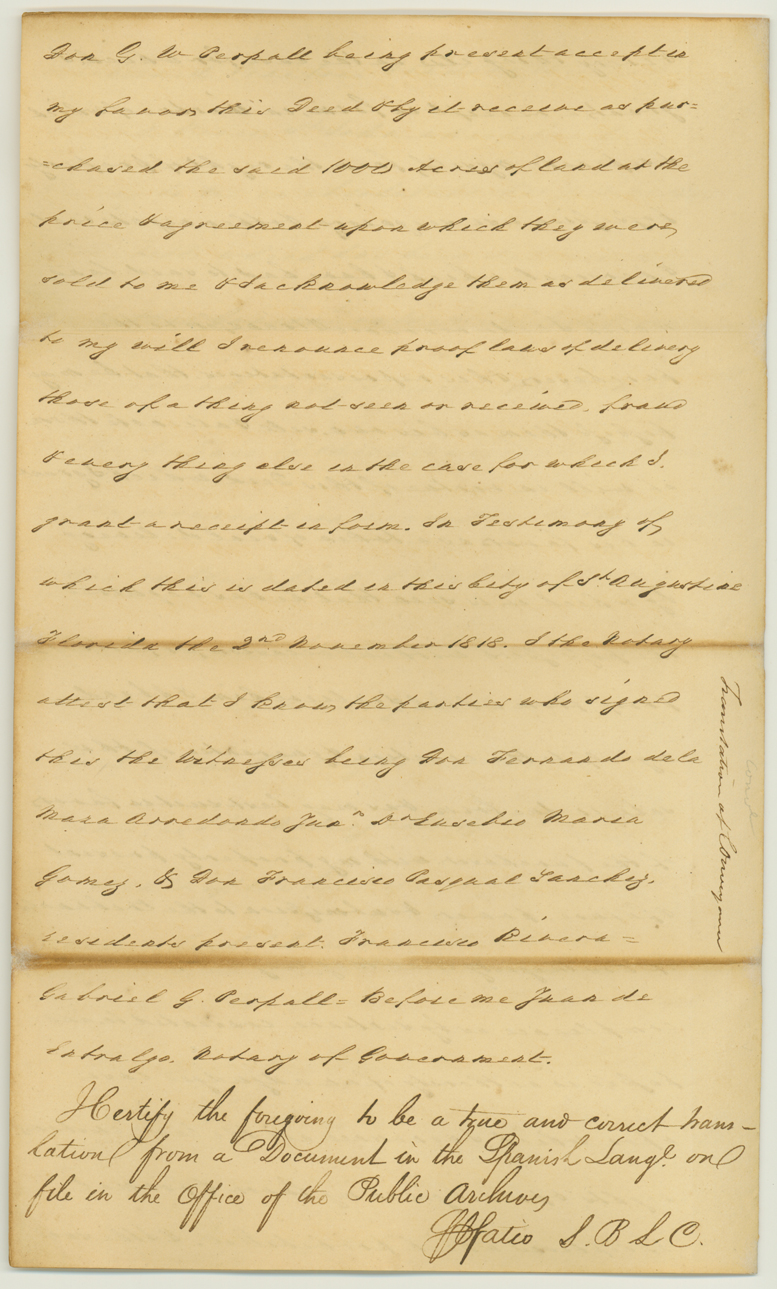 Don G. W Perpall being present accept in
my favor this Deed & by it receive as pur=
=chased the said 1000 Acres of land at the
price & agreement upon which they were,
sold to me & I acknowledge them as delivered
to my will I renounce proof laws of delivery
those of a thing not seen or received, fraud
& every thing else in the case for which I.
grant a receipt in form. In Testimony of,
which this is dated in this City of St. Augustine
Florida the 2nd November 1818. I the Notary
attest that I know the parties who signed
this the Witnesses being Don Fernando dela
Maza Arredondo Junn. Dn Eusebio Maria
Gomez, & Don Francisco Pasqual Sanchez,
residents present. Francisco Rivera =
Gabriel G. Perpall = Before me Juan de
Entralgo. Notary of Government.
I Certify the foregoing to be a true and correct trans-
lation from a Document in the Spanish Lange. on
file in the Office of the Public Archives
Fatio S. B L C.
Translation of Conveyance